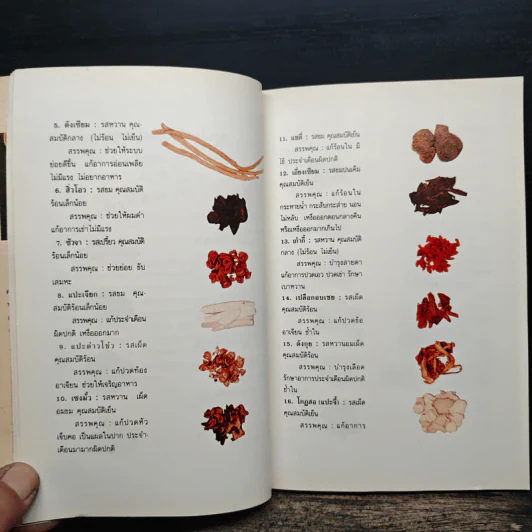 5. ตังเซียม : รสหวาน คุณ-
สมบัติกลาง (ไม่ร้อน ไม่เย็น)
สรรพคุณ : ช่วยให้ระบบ
ย่อยดีขึ้น แก้อาการอ่อนเพลีย
ไม่มีแรง ไม่อยากอาหาร
6. สิ่วโอว : รสขม คุณสมบัติ
ร้อนเล็กน้อย
สรรพคุณ : ช่วยให้ผมดำ
แก้อาการเข่าไม่มีแรง
7. ซัวจา : รสเปรี้ยว คุณสมบัติ
ร้อนเล็กน้อย
สรรพคุณ : ช่วยย่อย ขับ
เสมหะ
8. แปะเจียก : รสขม คุณ-
สมบัติร้อนเล็กน้อย
สรรพคุณ : แก้ประจำเดือน
ผิดปกติ เหงื่อออกมาก
9. แปะต่าวโข่ว : รสเผ็ด
คุณสมบัติร้อน
สรรพคุณ : แก้ปวดท้อง
อาเจียน ช่วยให้เจริญอาหาร
10. เซงมั้ว : รสหวาน เผ็ด
อมขม คุณสมบัติเย็น
สรรพคุณ : แก้ปวดหัว
เจ็บคอ เป็นแผลในปาก ประจำ-
เดือนมามากผิดปกติ
11. แฮตี่ : รสขม คุณสมบัติเย็น
สรรพคุณ : แก้ร้อนใน มี
ไข้ ประจำเดือนผิดปกติ
12. เฮี่ยงเซียม : รสขมปนเค็ม
คุณสมบัติเย็น
สรรพคุณ : แก้ร้อนใน
กระหายน้ำ กระสับกระส่าย นอน
ไม่หลับ เหงื่อออกตอนกลางคืน
หรือเหงื่อออกมากเกินไป
13. เก๋ากี้ : รสหวาน คุณสมบัติ
กลาง (ไม่ร้อน ไม่เย็น)
สรรพคุณ : บำรุงสายตา
แก้อาการปวดเอว ปวดเข่า รักษา
เบาหวาน
14. เปลือกอบเชย : รสเผ็ด
คุณสมบัติร้อน
สรรพคุณ : แก้ปวดท้อง
อาเจียน ช้ำใน
15. ตังกุย : รสหวานอมเผ็ด
คุณสมบัติร้อน
สรรพคุณ : บำรุงเลือด
รักษาอาการประจำเดือนผิดปกติ
ช้ำใน
16. โกฏสอ (แปะจี้) : รสเผ็ด
คุณสมบัติเย็น
สรรพคุณ : แก้อาการ